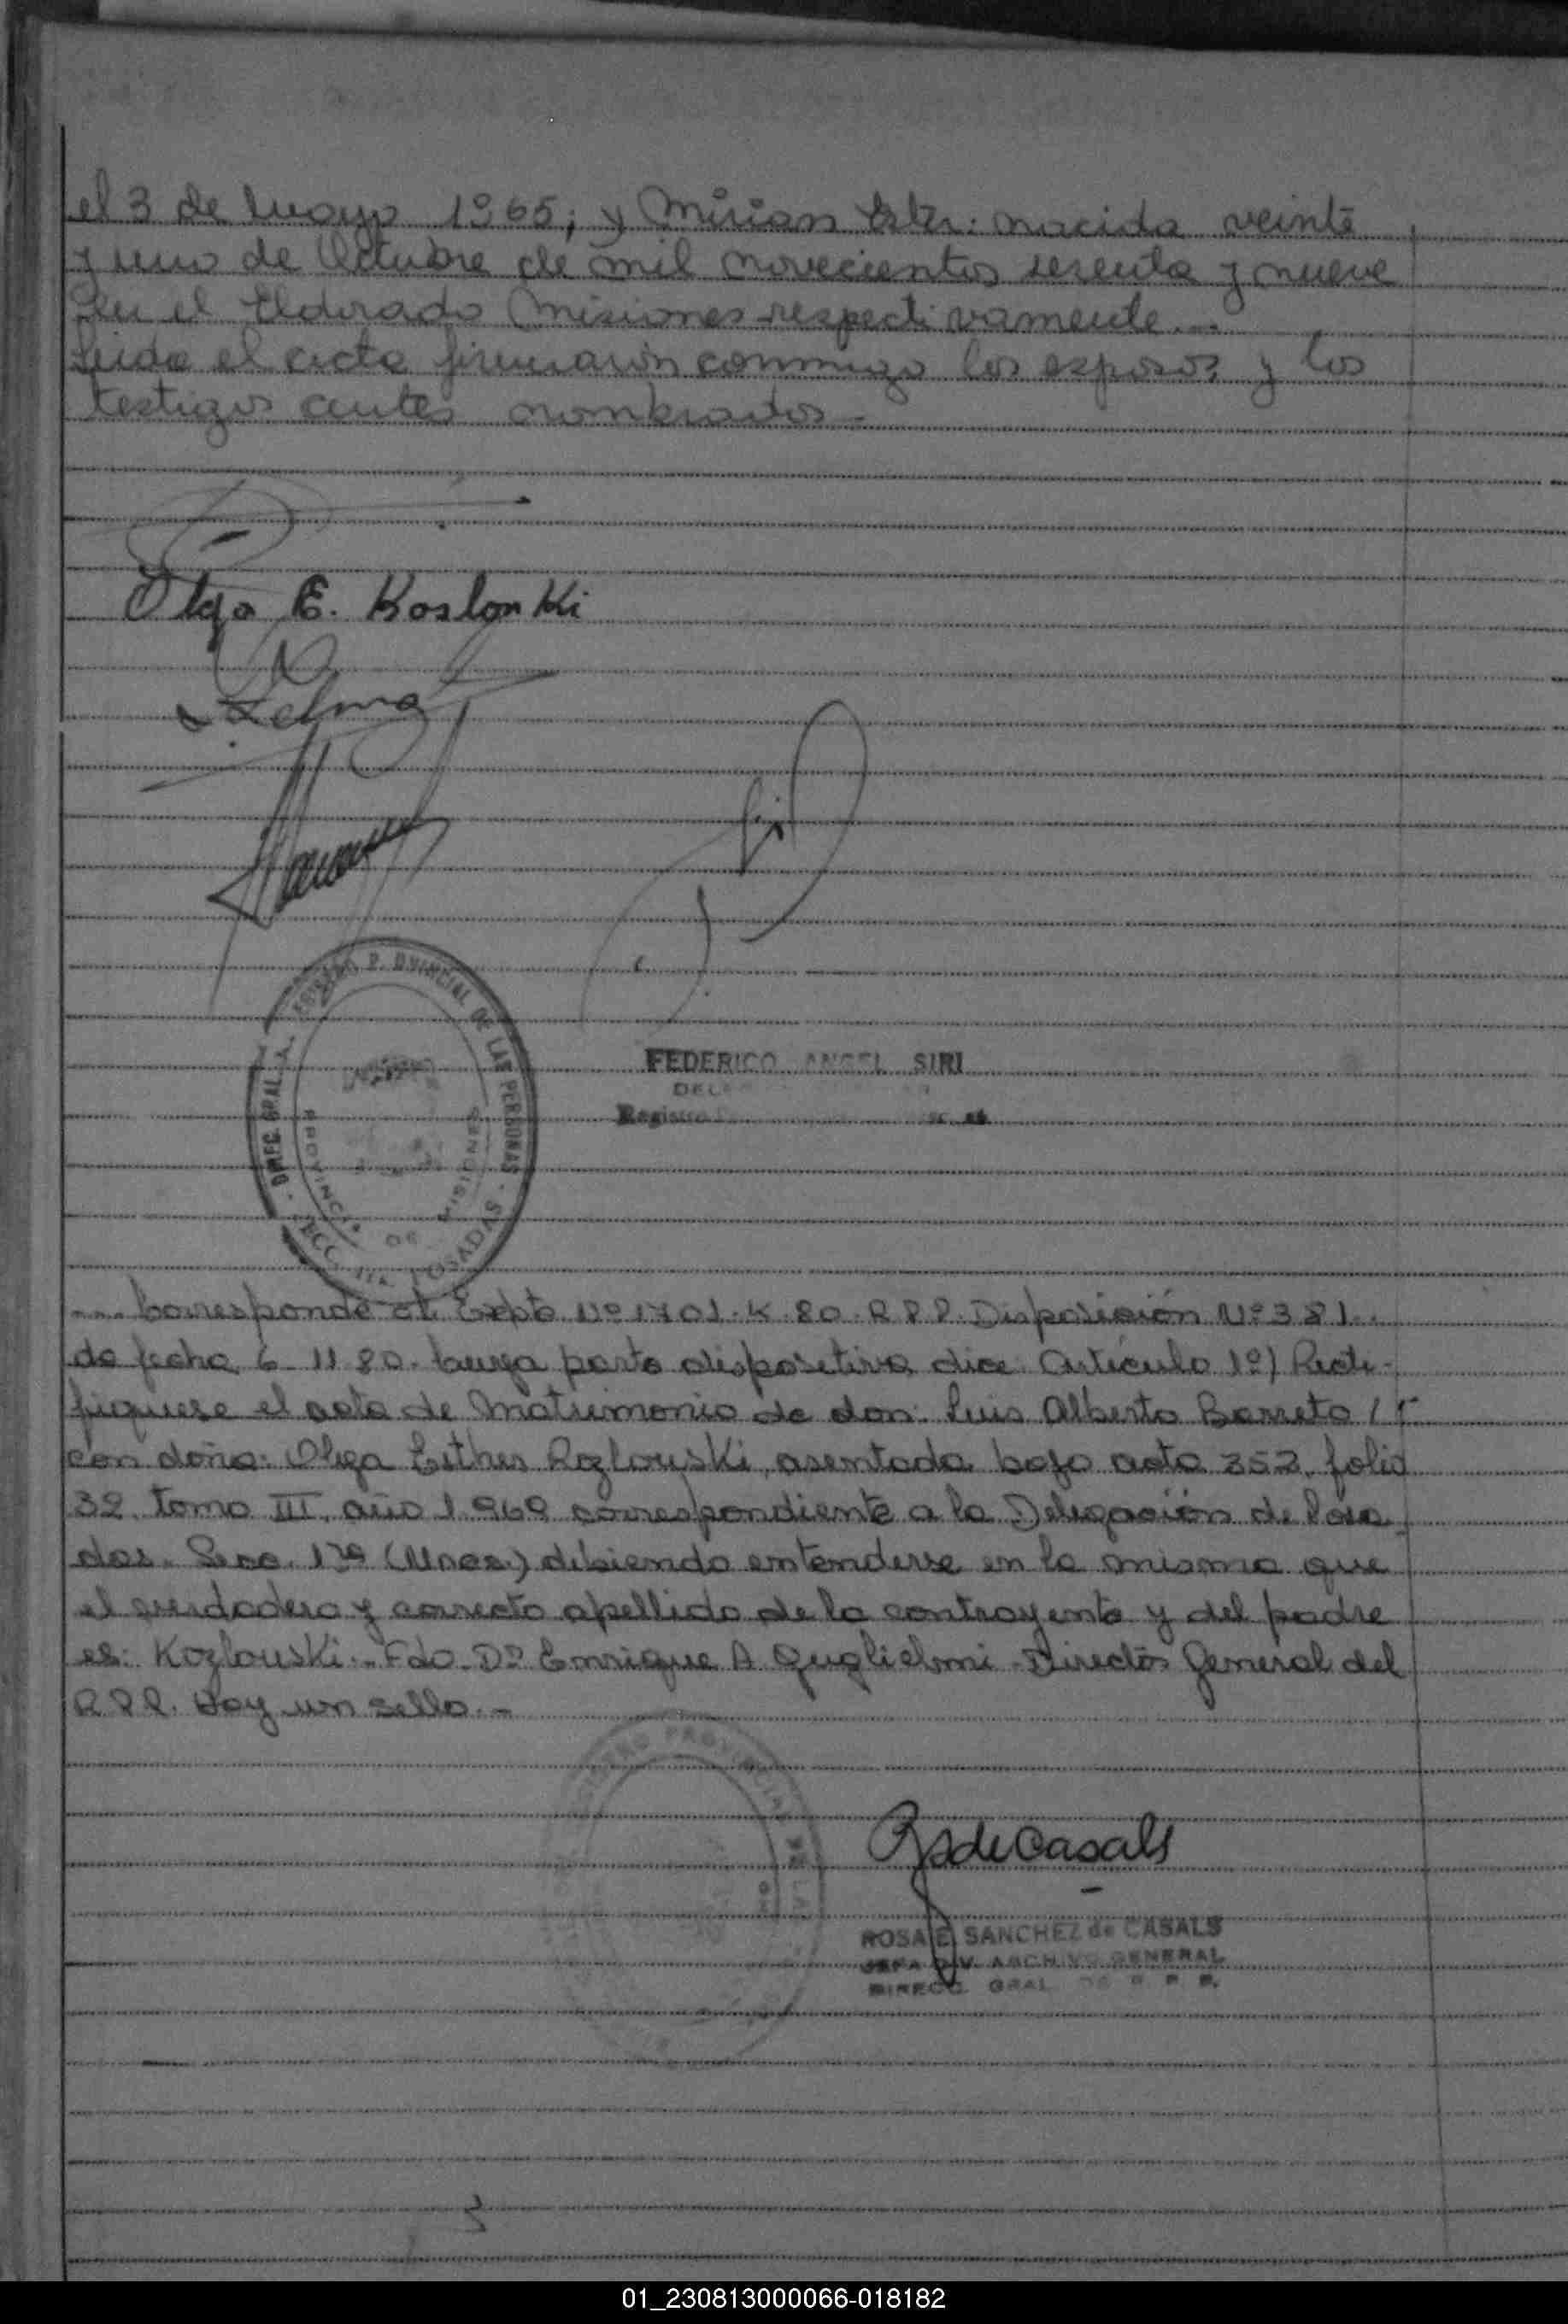 el 3 de mayo 1965; y Mirian Ester: nacida veinte
y uno de Octubre de mil novecientos sesenta y nueve
en el Eldorado Misiones respectivamente...
Leida el acta firmaron conmigo los esposos y los
testigos antes nombrados -
Olga E. Koslonki
Zelma
FEDERICO ANGEL SIRI
DEL
Registro
DIREC. GRAL. REGISTRO PROVINCIAL DE LAS PERSONAS - SECC. 1ra. POSADAS -
PROVINCIA DE MISIONES
.... Corresponde al Expte. Nº 1701. K. 80. R.P.P. Disposición Nº 381..
de fecha 6-11-80. Cuya parte dispositiva dice: Artículo 1º) Recti-
fiquese el acta de Matrimonio de don: Luis Alberto Barreto
con doña: Olga Esther Rozlouski, asentada bajo acta 352, folio
32. tomo III, año 1.969 correspondiente a la Delegación de Posa-
das. Secc. 1ra (Mnes.) debiendo entenderse en la misma que
el verdadero y correcto apellido de la contrayente y del padre
es: Kozlouski.- Fdo. Dr. Enrique A Guglielmi - Director General del
R.P.P. Hay un sello.-
REGISTRO PROVINCIAL DE LAS
RS de Casals
ROSA E. SANCHEZ de CASALS
JEFA DIV. ARCHIVO GENERAL
DIRECC. GRAL. DE R. P. P.
01_230813000066-018182